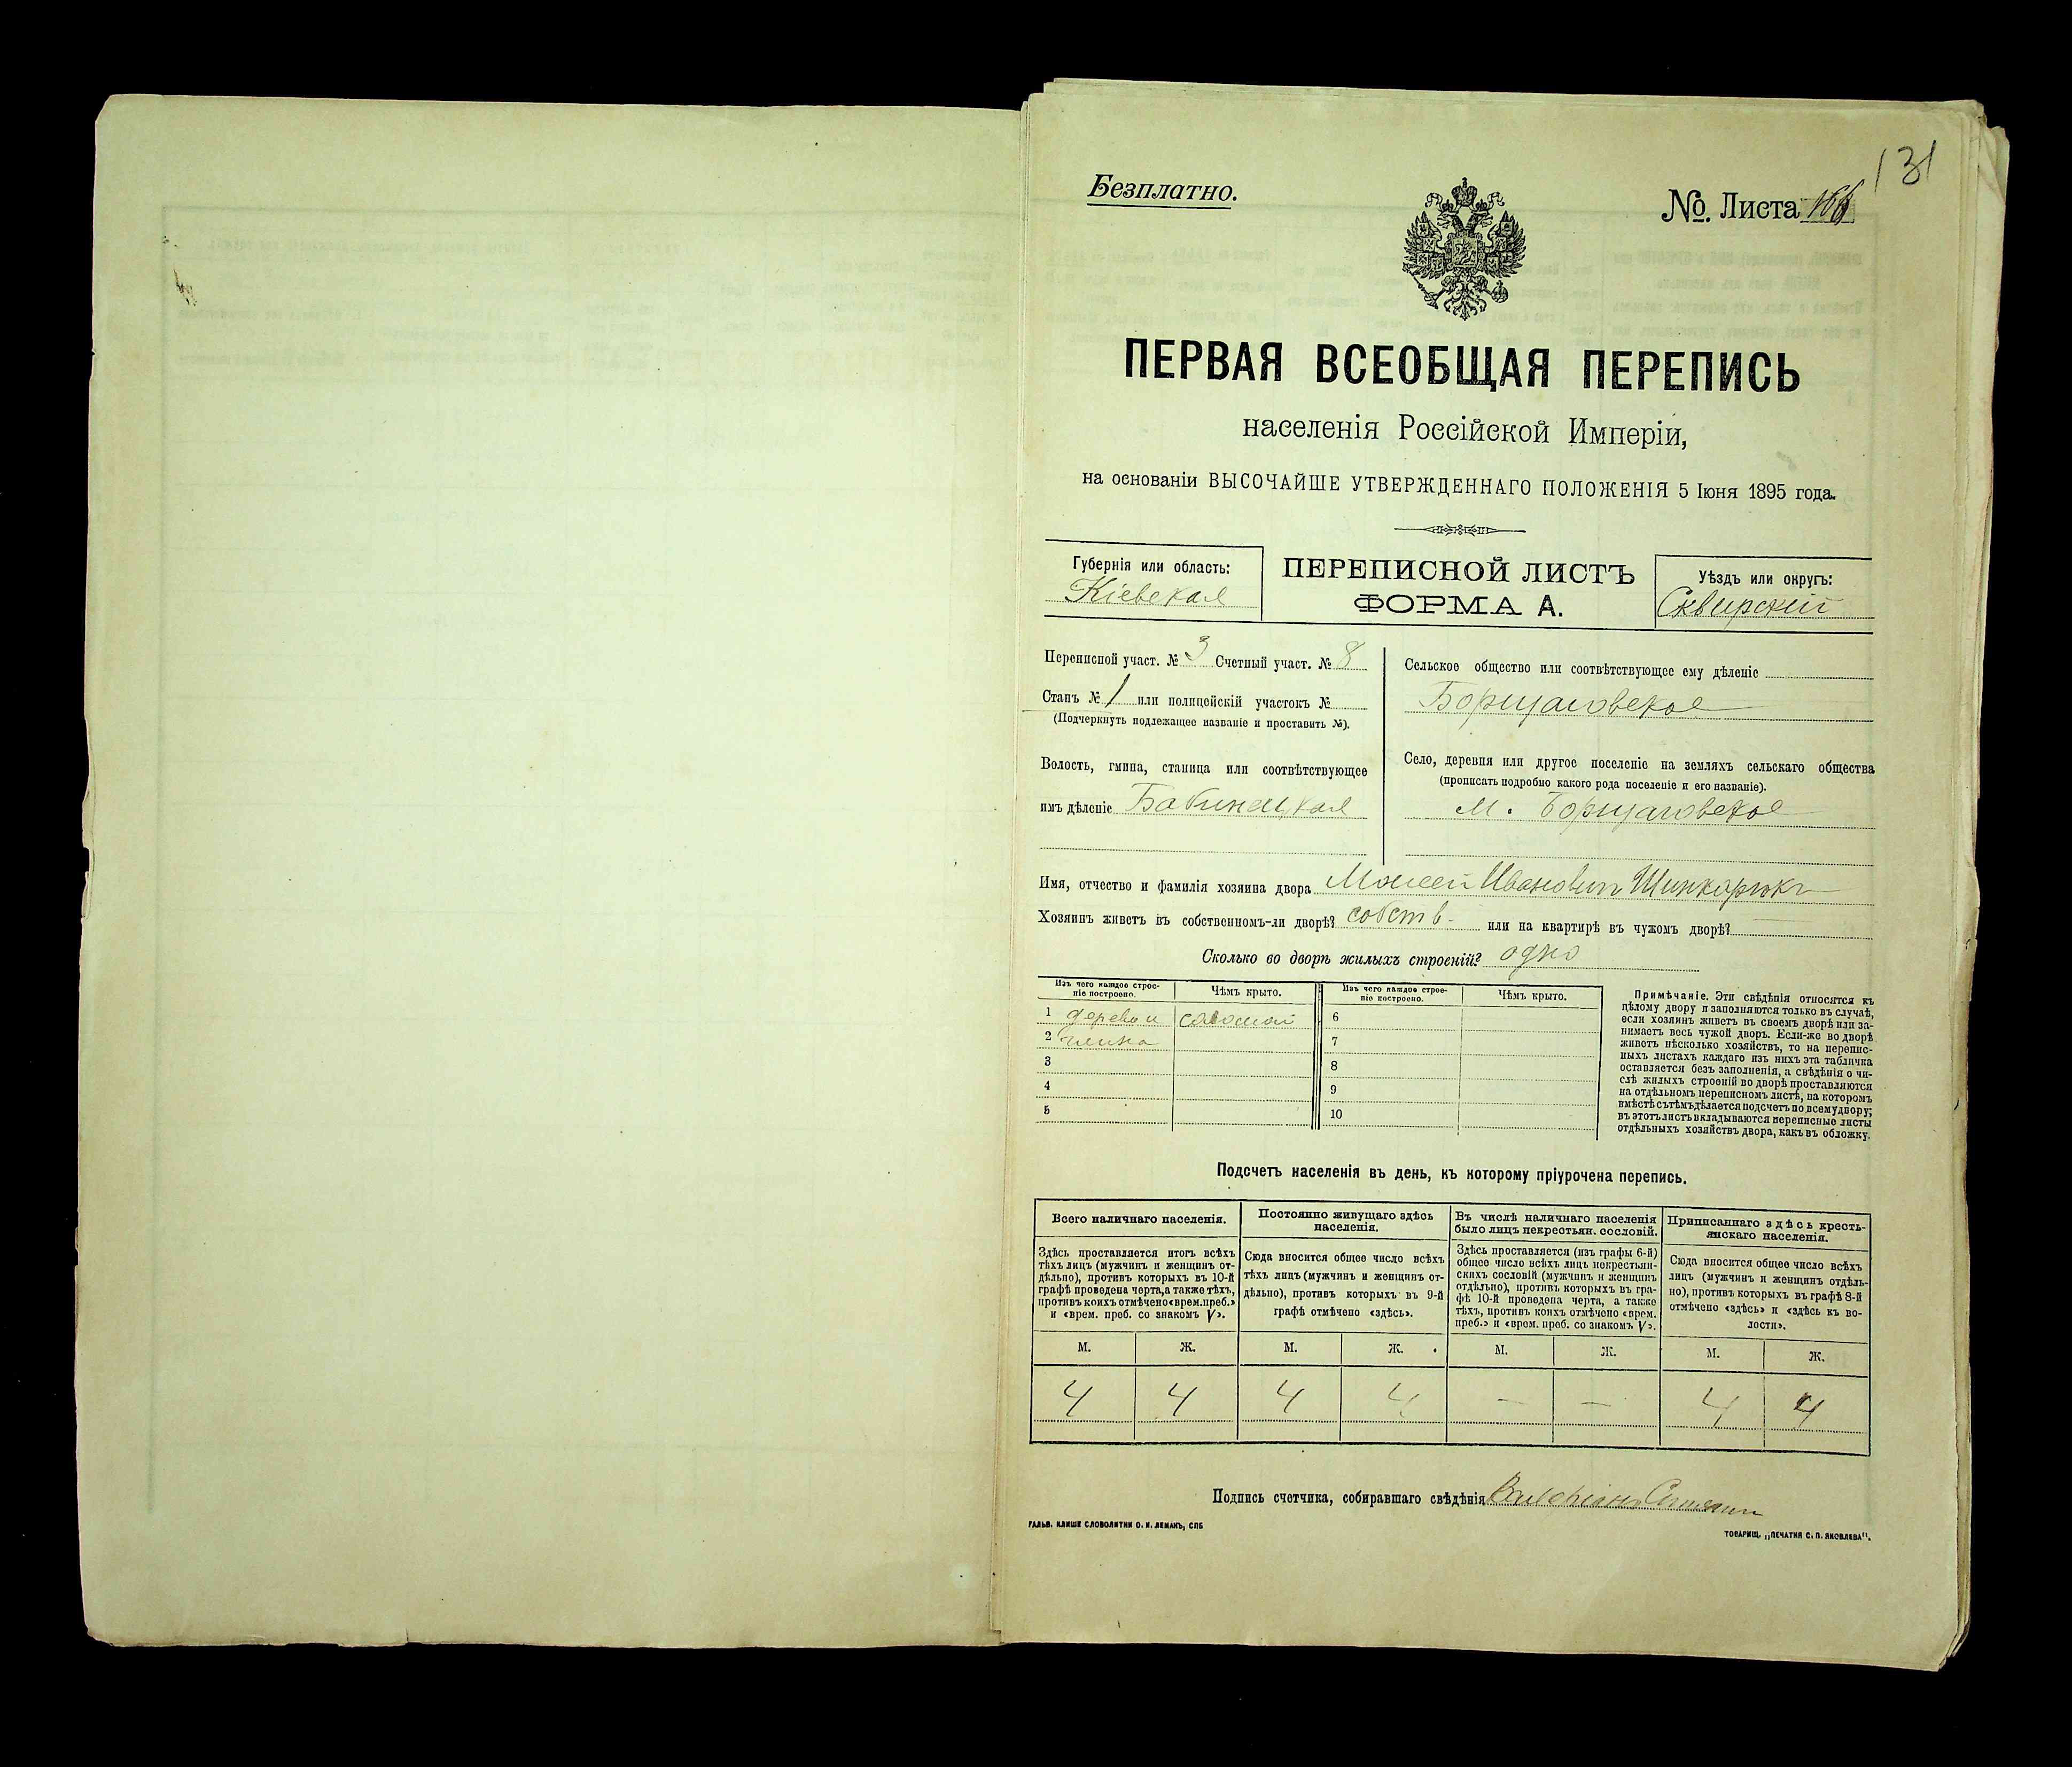 131
Безплатно.
№ Листа
ПЕРВАЯ ВСЕОБЩАЯ ПЕРЕПИСЬ
населенія Россійской Имперіи,
на основаніи ВЫСОЧАЙШЕ УТВЕРЖДЕННАГО ПОЛОЖЕНІЯ 5 Іюня 1895 года.
Губернія или область:
Кіевская
ПЕРЕПИСНОЙ ЛИСТЪ
ФОРМА А.
Уѣздъ или округъ:
Сквирскій
Переписной участ. № 3 Счетный участ. № 8
Станъ № 1 или полицейскій участокъ №
(Подчеркнуть подлежащее названіе и проставить №).
Волость, гмина, станица или соотвѣтствующее
имъ дѣленіе Бабинецкая
Сельское общество или соотвѣтствующее ему дѣленіе
Борщаговское
Село, деревня или другое поселеніе на земляхъ сельскаго общества
(прописать подробно какого рода поселеніе и его названіе).
м. Борщаговское
Имя, отчество и фамилія хозяина двора Моисей Ивановичъ Шинкарюкъ
Хозяинъ живетъ въ собственномъ-ли дворѣ? собств. или на квартирѣ въ чужомъ дворѣ? —
Сколько во дворѣ жилыхъ строеній? одно
Изъ чего каждое строе-
ніе построено.
Чѣмъ крыто.
1 дерево и соломой
2 глина
3
4
5
Изъ чего каждое строе-
ніе построено.
Чѣмъ крыто.
6
7
8
9
10
Примѣчаніе. Эти свѣдѣнія относятся къ
цѣлому двору и заполняются только въ случаѣ,
если хозяинъ живетъ въ своемъ дворѣ или за-
нимаетъ весь чужой дворъ. Если-же во дворѣ
живетъ нѣсколько хозяйствъ, то на перепис-
ныхъ листахъ каждаго изъ нихъ эта табличка
оставляется безъ заполненія, а свѣдѣнія о чи-
слѣ жилыхъ строеній во дворѣ проставляются
на отдѣльномъ переписномъ листѣ, на которомъ
вмѣстѣ съ тѣмъ дѣлается подсчетъ по всему двору;
въ этотъ листъ вкладываются переписные листы
отдѣльныхъ хозяйствъ двора, какъ въ обложку.
Подсчетъ населенія въ день, къ которому пріурочена перепись.
Всего наличнаго населенія.
Здѣсь проставляется итогъ всѣхъ
тѣхъ лицъ (мужчинъ и женщинъ от-
дѣльно), противъ которыхъ въ 10-й
графѣ проведена черта, а также тѣхъ,
противъ коихъ отмѣчено «врем. преб.»
и «врем. преб. со знакомъ V».
Постоянно живущаго здѣсь
населенія.
Сюда вносится общее число всѣхъ
тѣхъ лицъ (мужчинъ и женщинъ от-
дѣльно), противъ которыхъ въ 9-й
графѣ отмѣчено «здѣсь».
Въ числѣ наличнаго населенія
было лицъ некрестьян. сословій.
Здѣсь проставляется (изъ графы 6-й)
общее число всѣхъ лицъ некрестьян-
скихъ сословій (мужчинъ и женщинъ
отдѣльно), противъ которыхъ въ гра-
фѣ 10-й проведена черта, а также
тѣхъ, противъ коихъ отмѣчено «врем.
преб.» и «врем. преб. со знакомъ V».
Приписаннаго здѣсь кресть-
янскаго населенія.
Сюда вносится общее число всѣхъ
лицъ (мужчинъ и женщинъ отдѣль-
но), противъ которыхъ въ графѣ 8-й
отмѣчено «здѣсь» и «здѣсь къ во-
лости».
М. Ж. М. Ж. М. Ж. М. Ж.
4 4 4 4 — — 4 4
Подпись счетчика, собиравшаго свѣдѣнія
ГАЛЬВ. КЛИШЕ СЛОВОЛИТНИ О. И. ЛЕМАНЪ, СПБ
ТОВАРИЩ. „ПЕЧАТНЯ С. П. ЯКОВЛЕВА".